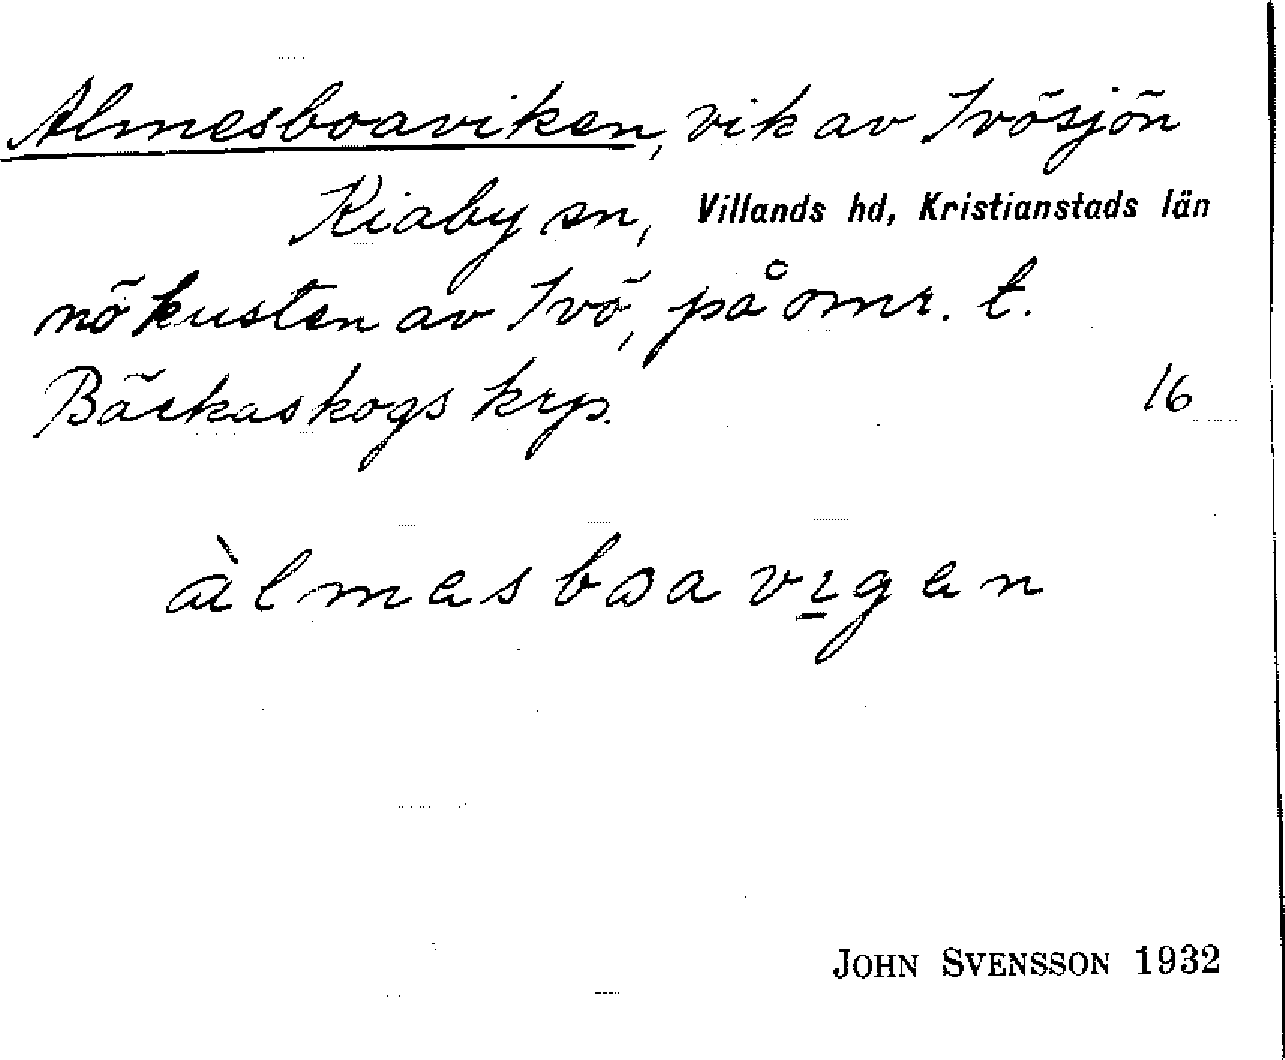 Almesboaviken, vik av Ivösjön
Kiaby sn, Villands hd, Kristianstads län
nö kusten av Ivö, på omr. t.
Bäckaskogs krp. 16
àlmesboavıgen
JOHN SVENSSON 1932